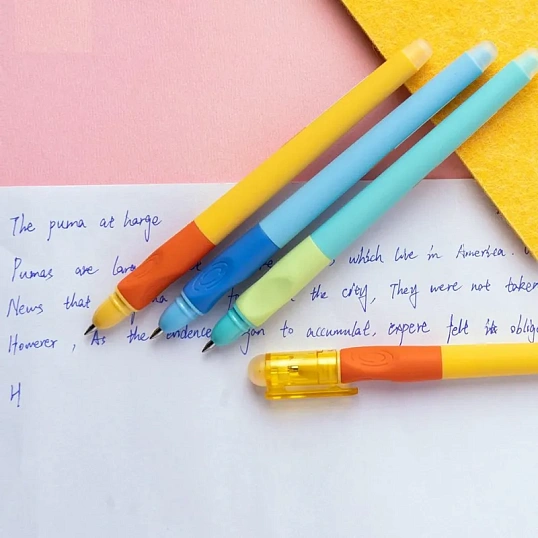 The puma at harge
Pumas are which live in America.
News that the city, They were not taken
However, As the to accumulat, expere felt obliq
H